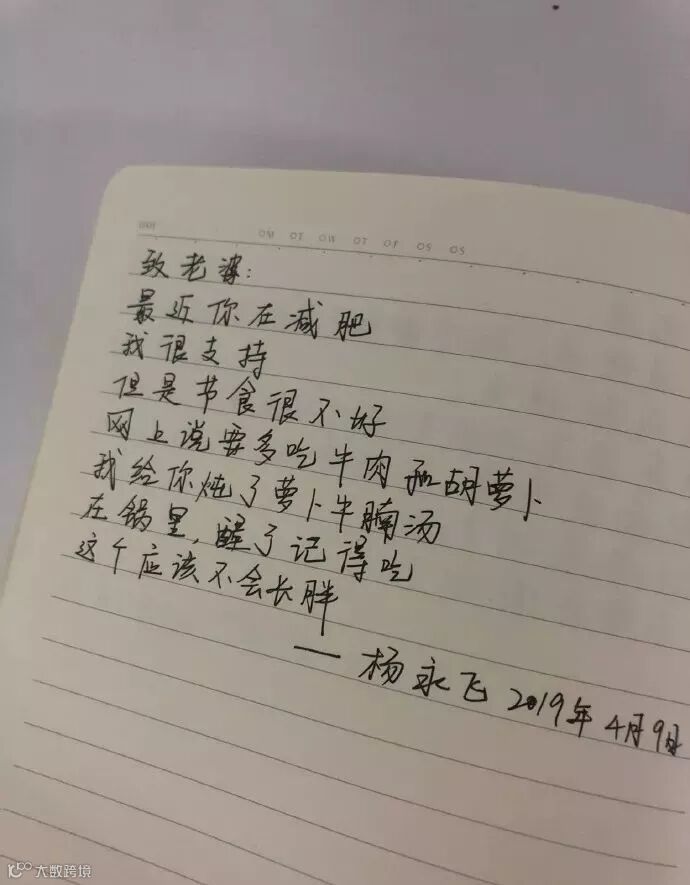 DATE
OM OT OW OT OF OS OS
致老婆:
最近你在减肥
我很支持
但是节食很不好
网上说要多吃牛肉和胡萝卜
我给你炖了萝卜牛腩汤
在锅里,醒了记得吃
这个应该不会长胖
——杨永飞 2019年4月9日
大数跨境